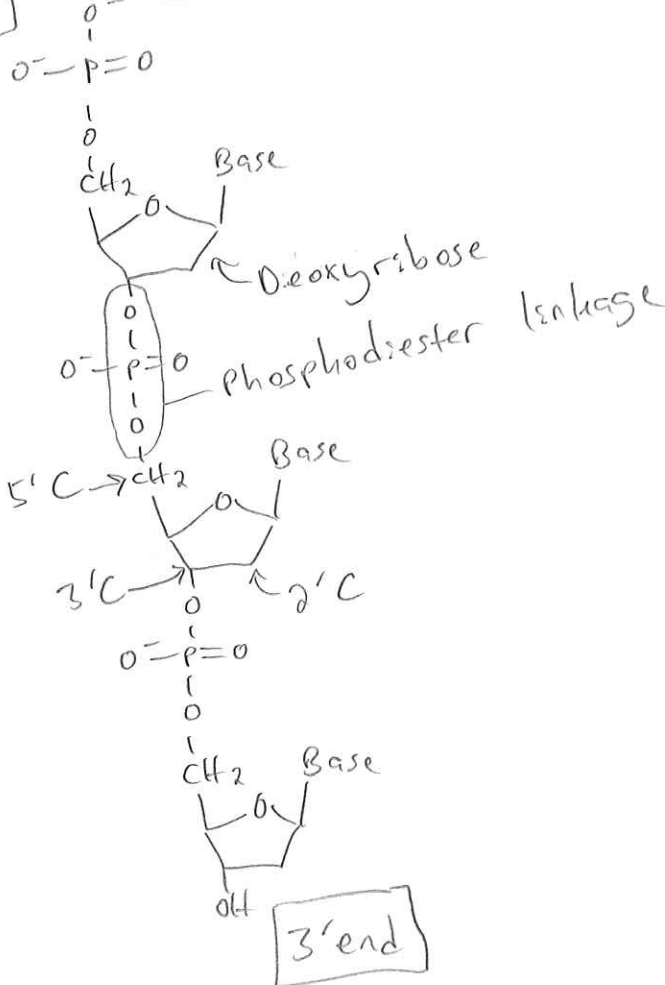 O⁻
O⁻—P=O
O
CH2 Base
O
Deoxyribose
O
O⁻—P=O
Phosphodiester linkage
O
5'C→CH2 Base
O
3'C 2'C
O
O⁻—P=O
O
CH2 Base
O
OH
3'end